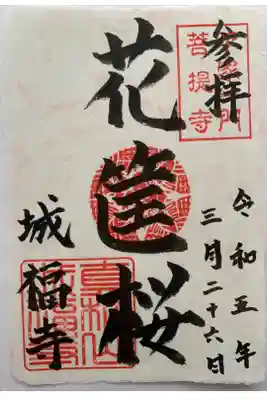 参拝
菩提寺
令和五年
三月二十六日
花筐桜
城福寺